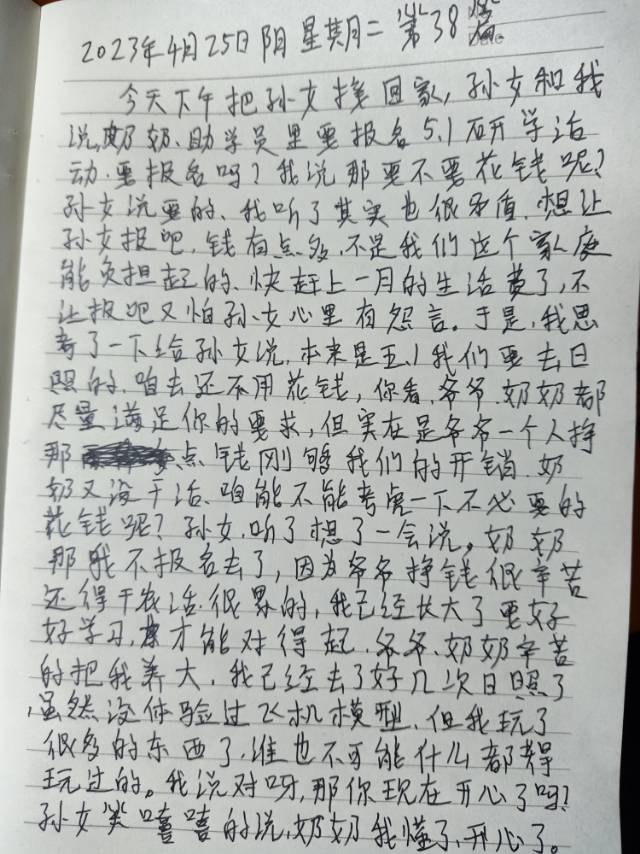 2023年4月25日阴 星期二 第38篇
Date
今天下午把孙女接回家,孙女和我
说,奶奶、助学员里要报名5.1研学活
动.要报名吗?我说那要不要花钱呢?
孙女说要的、我听了其实也很矛盾.想让
孙女报吧.钱有点多.不是我们这个家庭
能负担起的、快赶上一月的生活费了,不
让报吧又怕孙女心里有怨言。于是,我思
考了一下给孙女说,本来是五.1我们要去日
照的.咱去还不用花钱,你看.爷爷.奶奶都
尽量满足你的要求,但实在是爷爷一个人挣
那点钱刚够我们的开销.奶
奶又没干活、咱能不能考虑一下不必要的
花钱呢?孙女.听了想了一会说,奶奶
那我不报名去了,因为爷爷挣钱很辛苦
还得干农活.很累的,我已经长大了要好
好学习,才能对得起.爷爷、奶奶辛苦
的把我养大,我已经去了好几次日照了
,虽然没体验过飞机模型,但我玩了
很多的东西了,谁也不可能什么都得
玩过的。我说对呀,那你现在开心了吗?
孙女笑嘻嘻的说,奶奶我懂了,开心了。